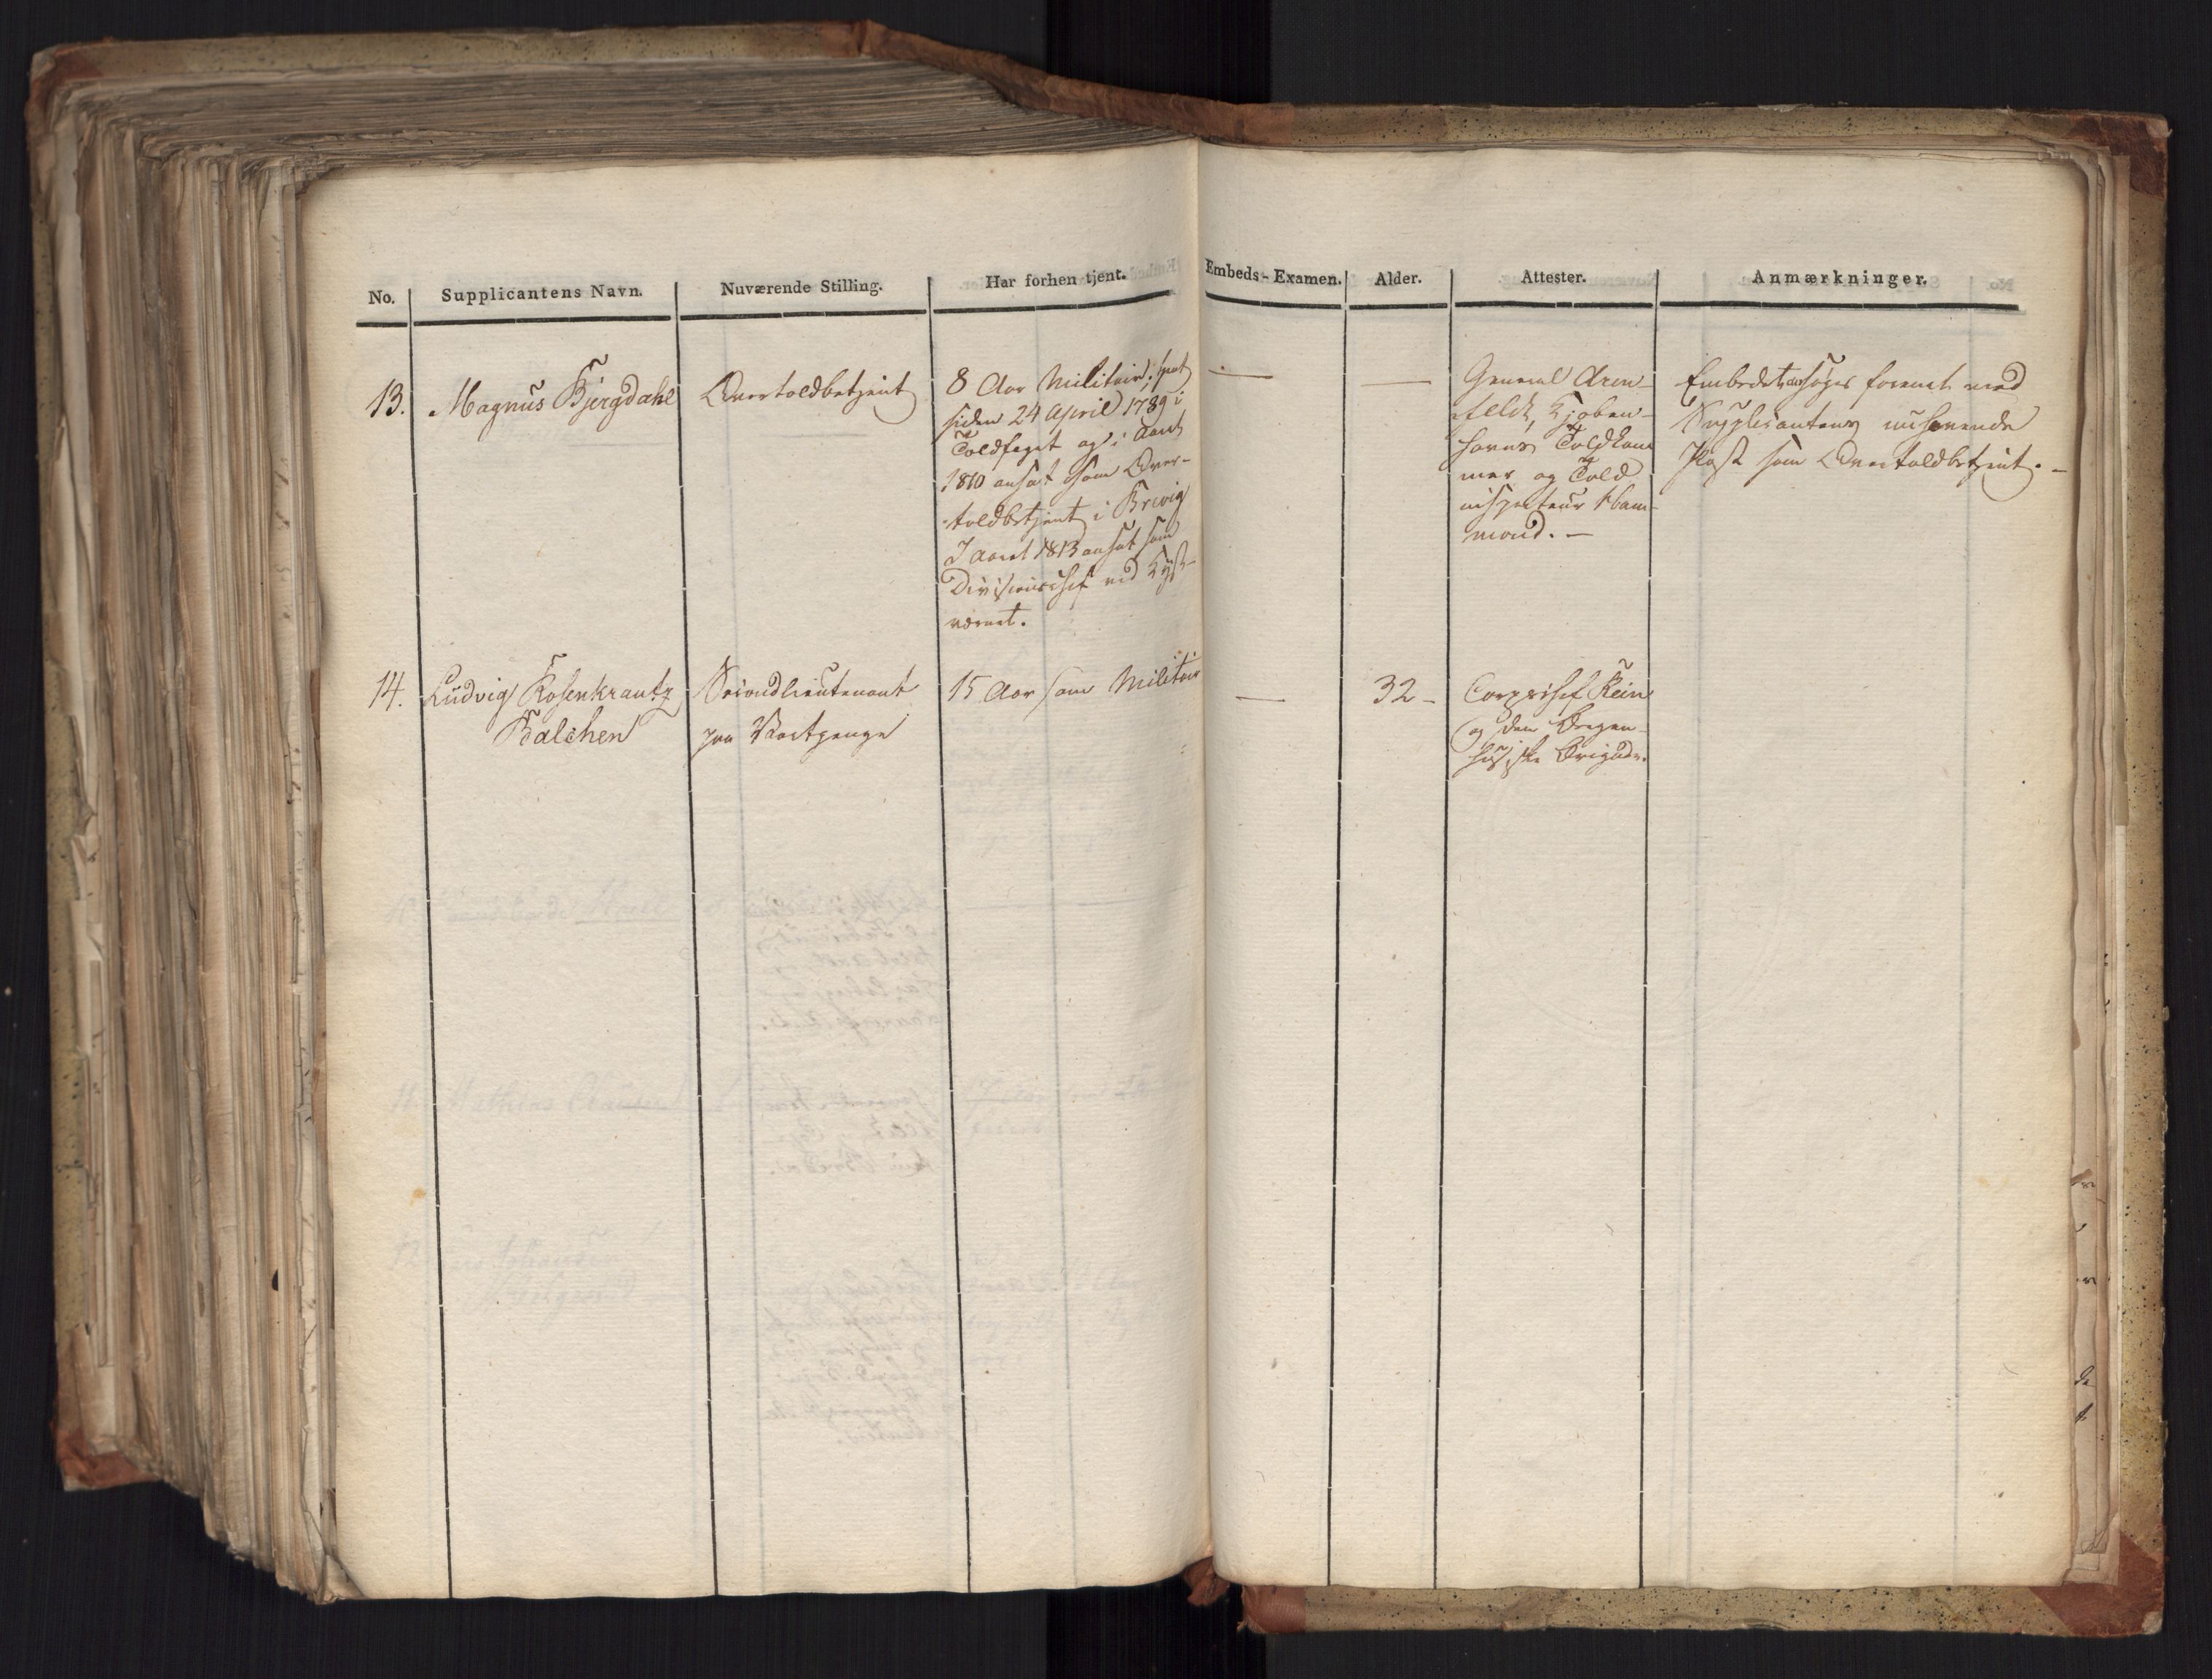 No. Supplicantens Navn. Nuværende Stilling. Har forhen tjent. Embeds-Examen. Alder. Attester. Anmærkninger.
13.
Magnus Bjergdahl
Overtoldbetjent
8 Aar Militair; samt
siden 24 April 1789 i
Toldfaget og i Aaret
1810 ansat som Over-
toldbetjent i Brevig
I aaret 1813 ansat som
Divisionschef ved Kyst-
værnet.
—
—
General Aren-
feldt, Kjøben-
havns Toldkam
mer og Told
inspecteur Ham-
mond. —
Embedet ansøges forenet med
Supplicantens nuhavende
Post som Overtoldbetjent. —
14.
Ludvig Rosenkrantz
Balchen
Secondlieutenant
paa Vartpenge
15 Aar som Militair
—
32 —
Corpschef Rein
og den Bergen-
husiske Brigade.